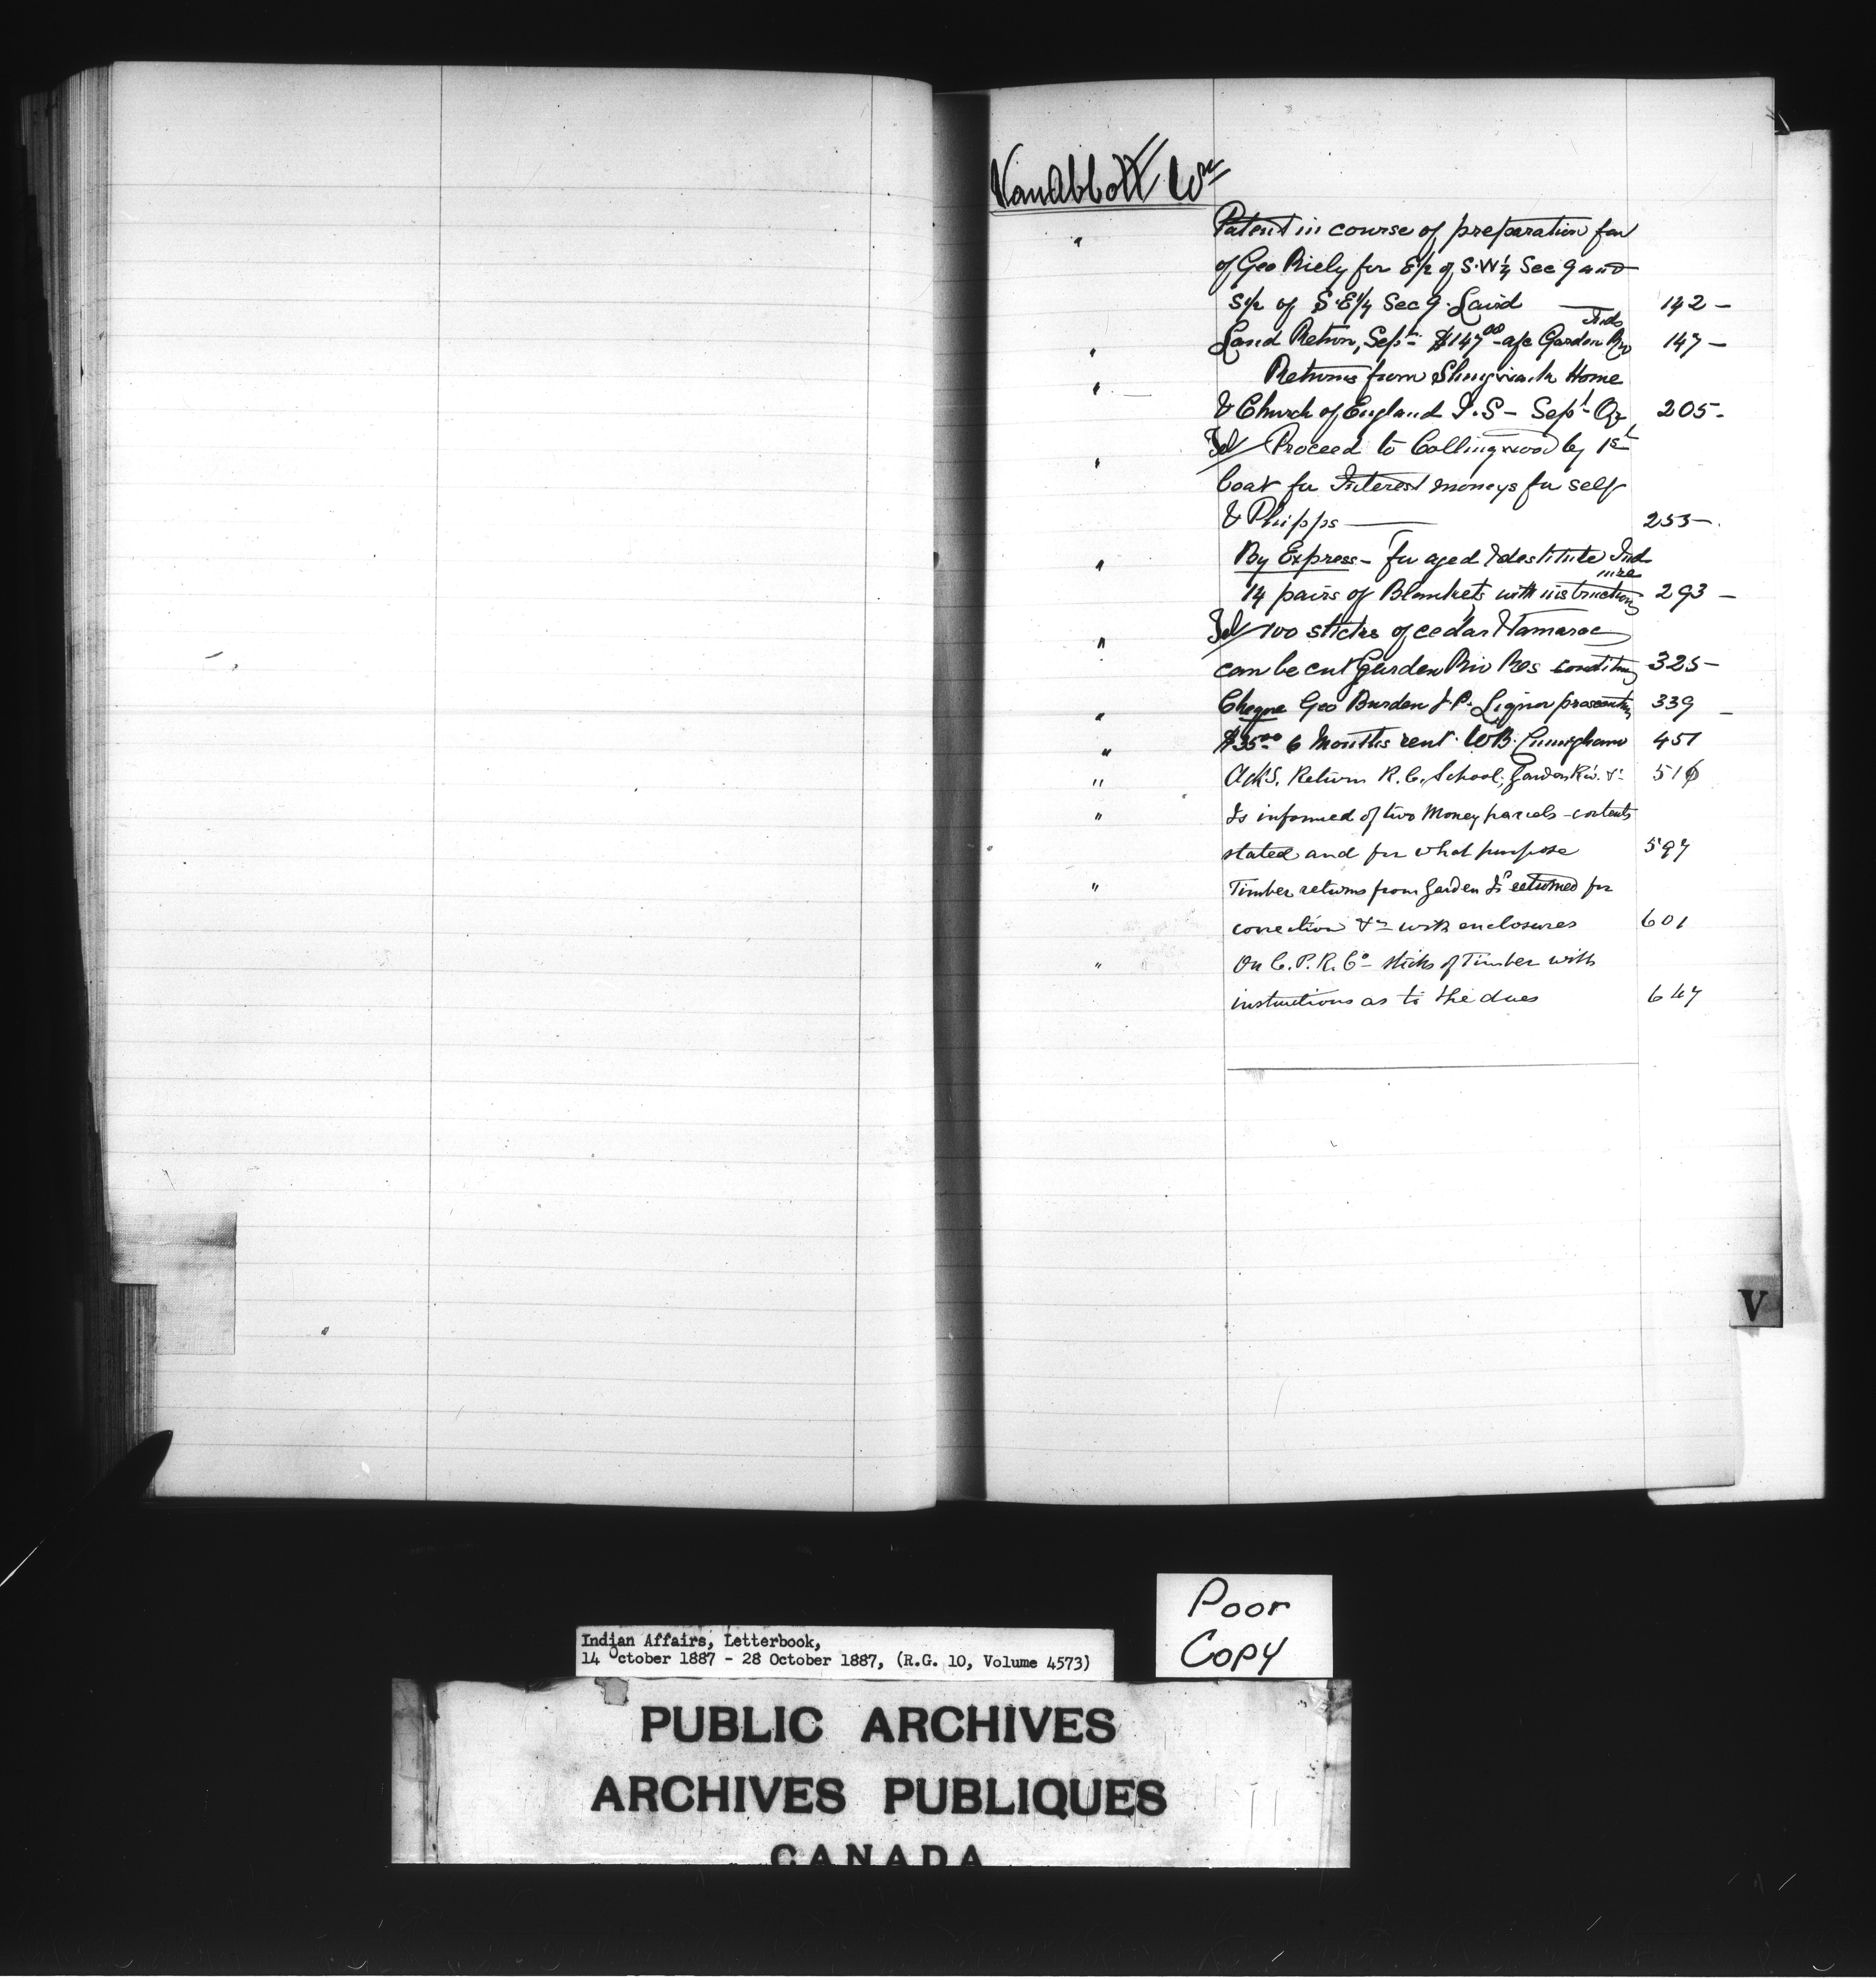 VanAbbott Wm
" Patent in course of preparation for
of Geo Riely for E½ of S.W¼ Sec 9 and
S½ of S.E¼ Sec 9. Laird — 142 —
Inds
" Land Return, Sept $147.00 a/c Garden Riv 147 —
" Returns from Shingwauk Home
& Church of England I.S — Sept Qr 205 -
" Tel/ Proceed to Collingwood by 1st
boat for Interest moneys for self
& Phipps — 253 —
" By Express - for aged & destitute Ind
14 pairs of Blankets with instructions 293 —
" Tel/ 100 sticks of cedar & Tamarac
can be cut Garden Riv Res conditions 325 —
" Cheque Geo Burden J.P. Liquor prosecution 339 —
" $35.00 6 Months rent. WB. Cunningham 451
" Acks. Return R.C. School, Garden Riv. &c 516
" Is informed of two Money parcels - contents
stated and for what purpose 597
" Timber returns from Garden Rr returned for
correction &c with enclosures 601
" On C.P.R. Co sticks of Timber with
instructions as to the dues 647
V
Poor
Copy
Indian Affairs, Letterbook,
14 October 1887 - 28 October 1887, (R.G. 10, Volume 4573)
PUBLIC ARCHIVES
ARCHIVES PUBLIQUES
CANADA